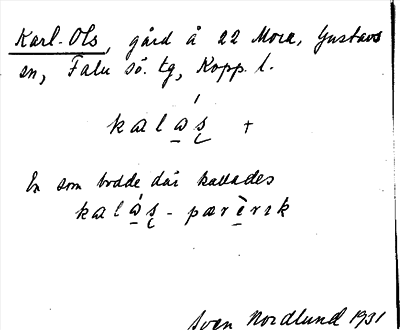 Karl-Ols, gård å 22 Mora, Gustavs
sn, Falu sö. tg, Kopp. l.
kalas̨ +
En som bodde där kallades
kalás̨ - pærèrɪk
Sven Nordlund 1931